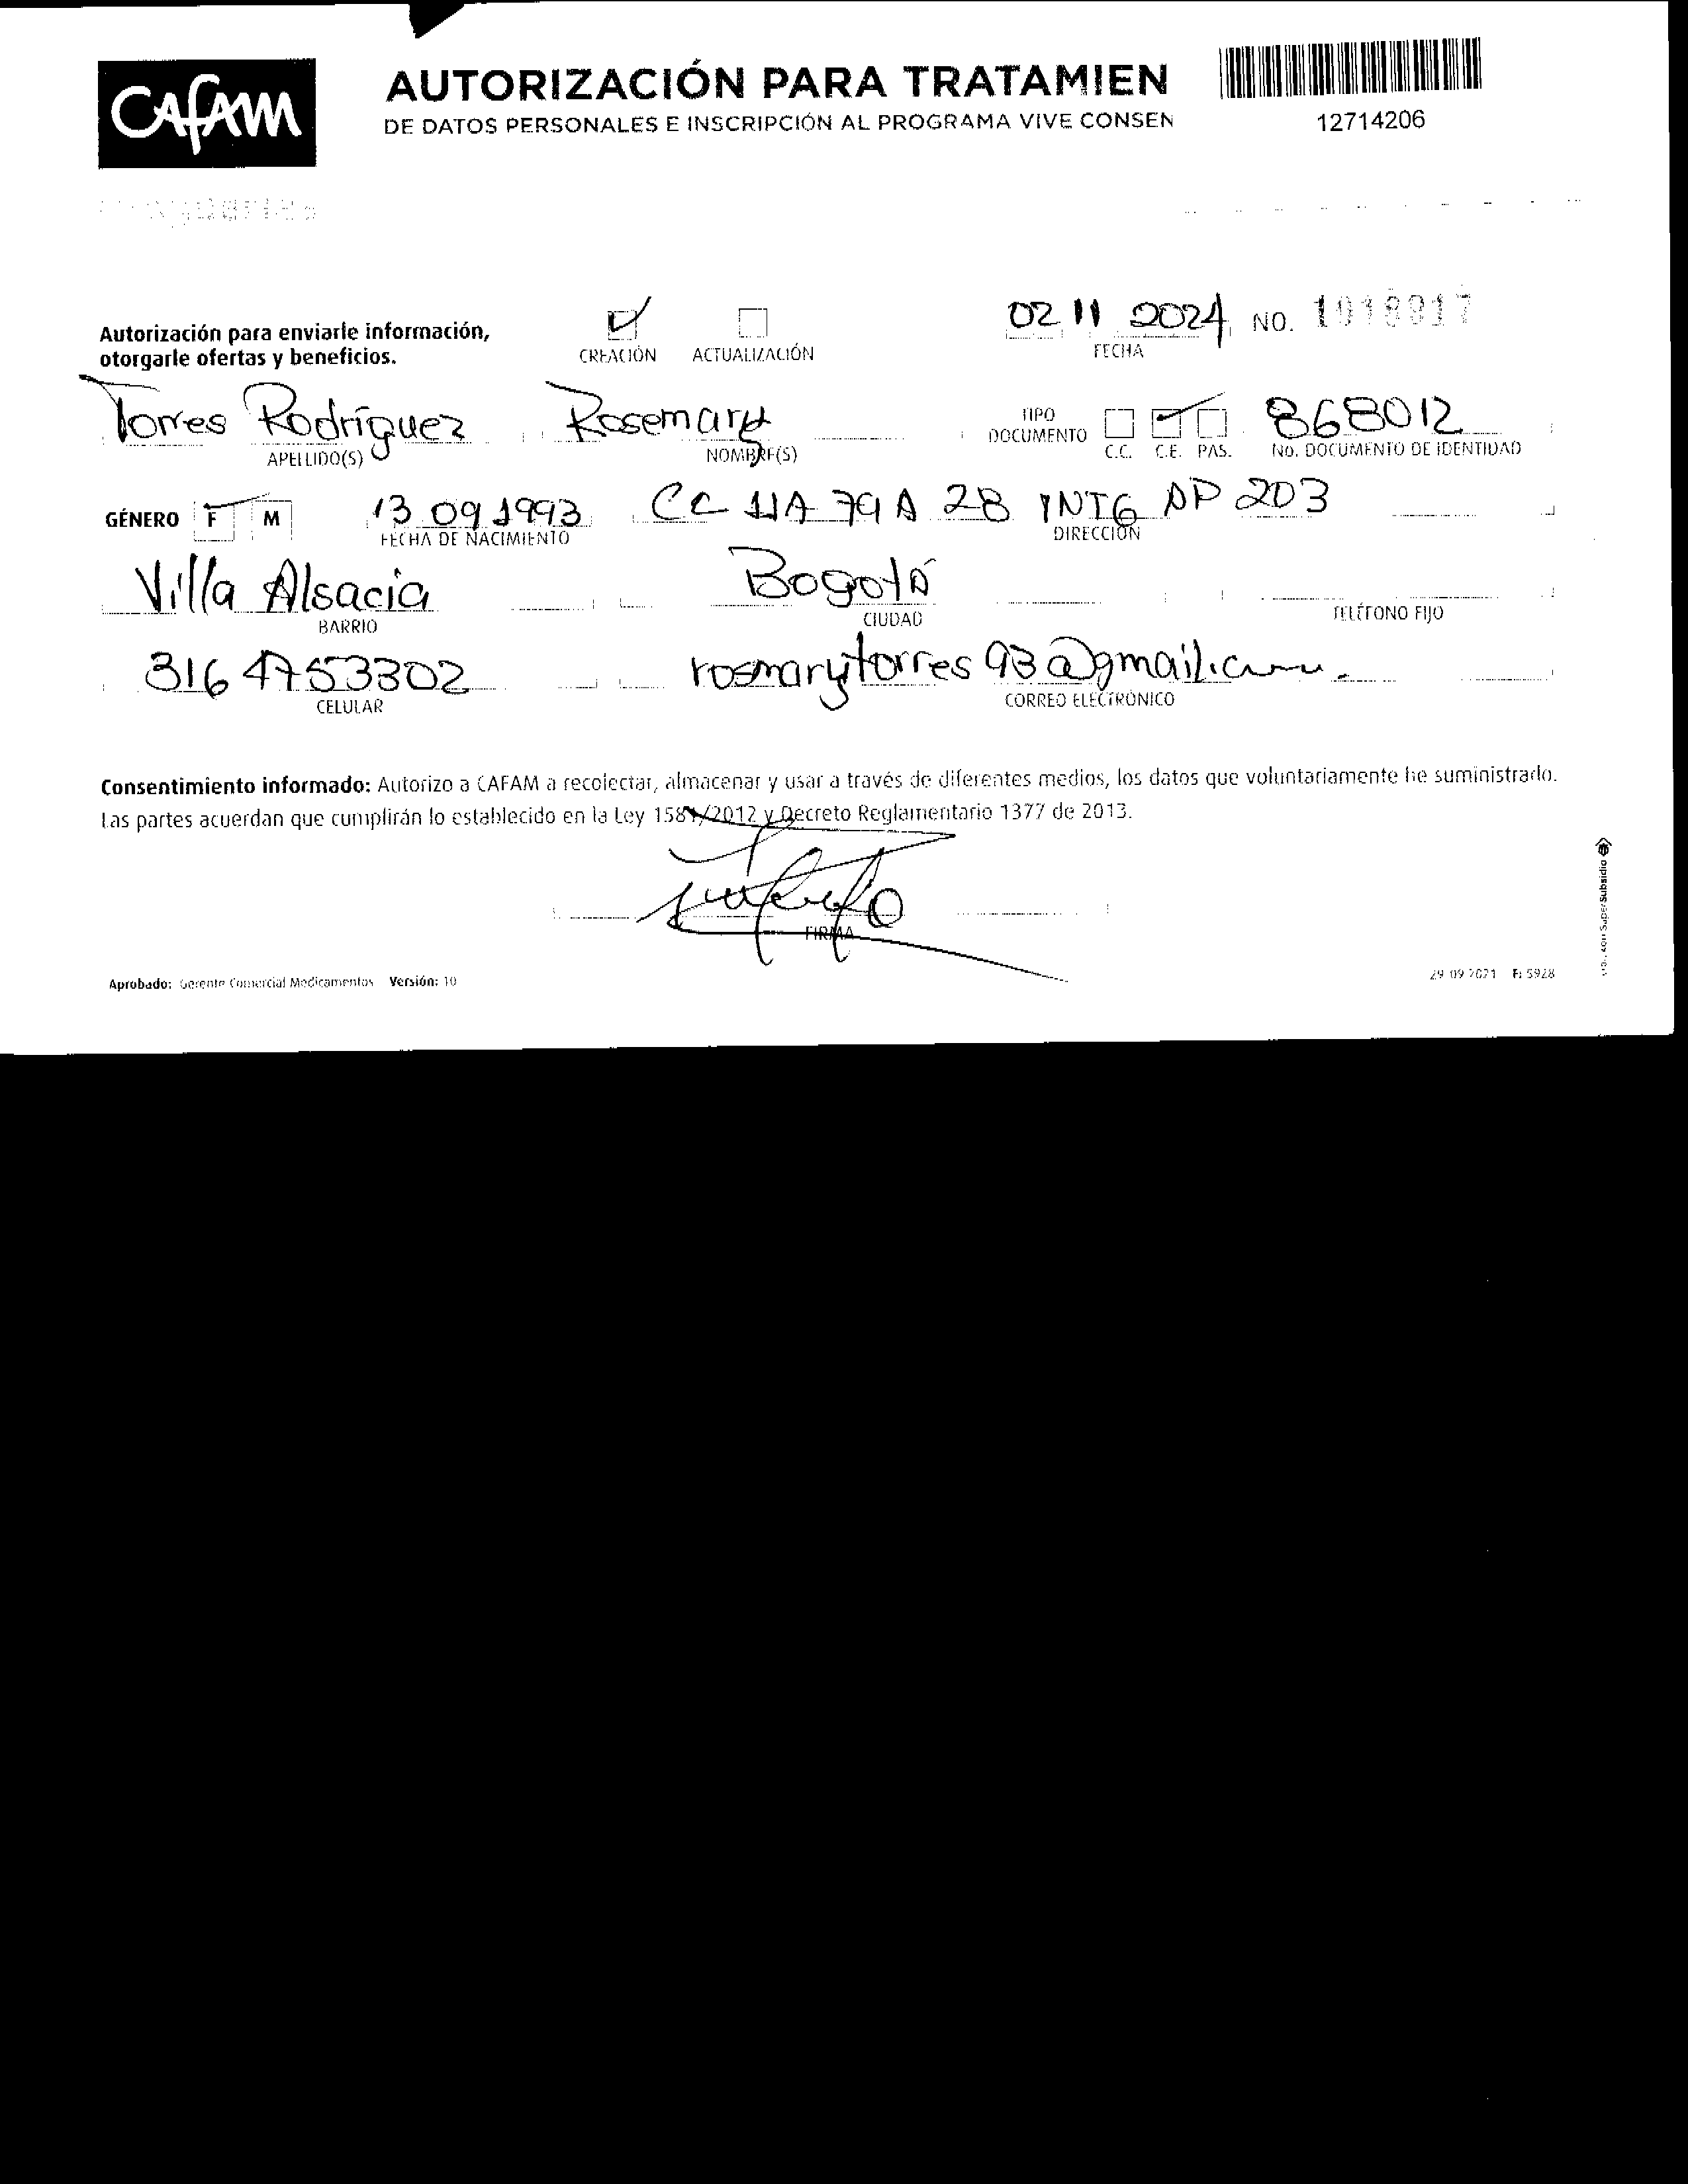 CAFAM
AUTORIZACIÓN PARA TRATAMIEN
DE DATOS PERSONALES E INSCRIPCIÓN AL PROGRAMA VIVE CONSEN
12714206
Autorización para enviarle información,
otorgarle ofertas y beneficios.
CREACIÓN ACTUALIZACIÓN
02 11 2024 NO.
FECHA
Torres Rodríguez Rosemary TIPO DOCUMENTO 868012
APELLIDO(S) NOMBRE(S) C.C. C.E. PAS. No. DOCUMENTO DE IDENTIDAD
GÉNERO F M 13 09 1993 CC 11A 79 A 28 INT6 AP 203
FECHA DE NACIMIENTO DIRECCIÓN
Villa Alsacia Bogotá
BARRIO CIUDAD TELÉFONO FIJO
316 4753302 rosmarytorres93@gmail.com
CELULAR CORREO ELECTRÓNICO
Consentimiento informado: Autorizo a CAFAM a recolectar, almacenar y usar a través de diferentes medios, los datos que voluntariamente he suministrado.
Las partes acuerdan que cumplirán lo establecido en la Ley 1581/2012 y Decreto Reglamentario 1377 de 2013.
FIRMA
Aprobado: Gerente Comercial Medicamentos Versión: 10
29 09 2021 F: 5928
SuperSubsidio